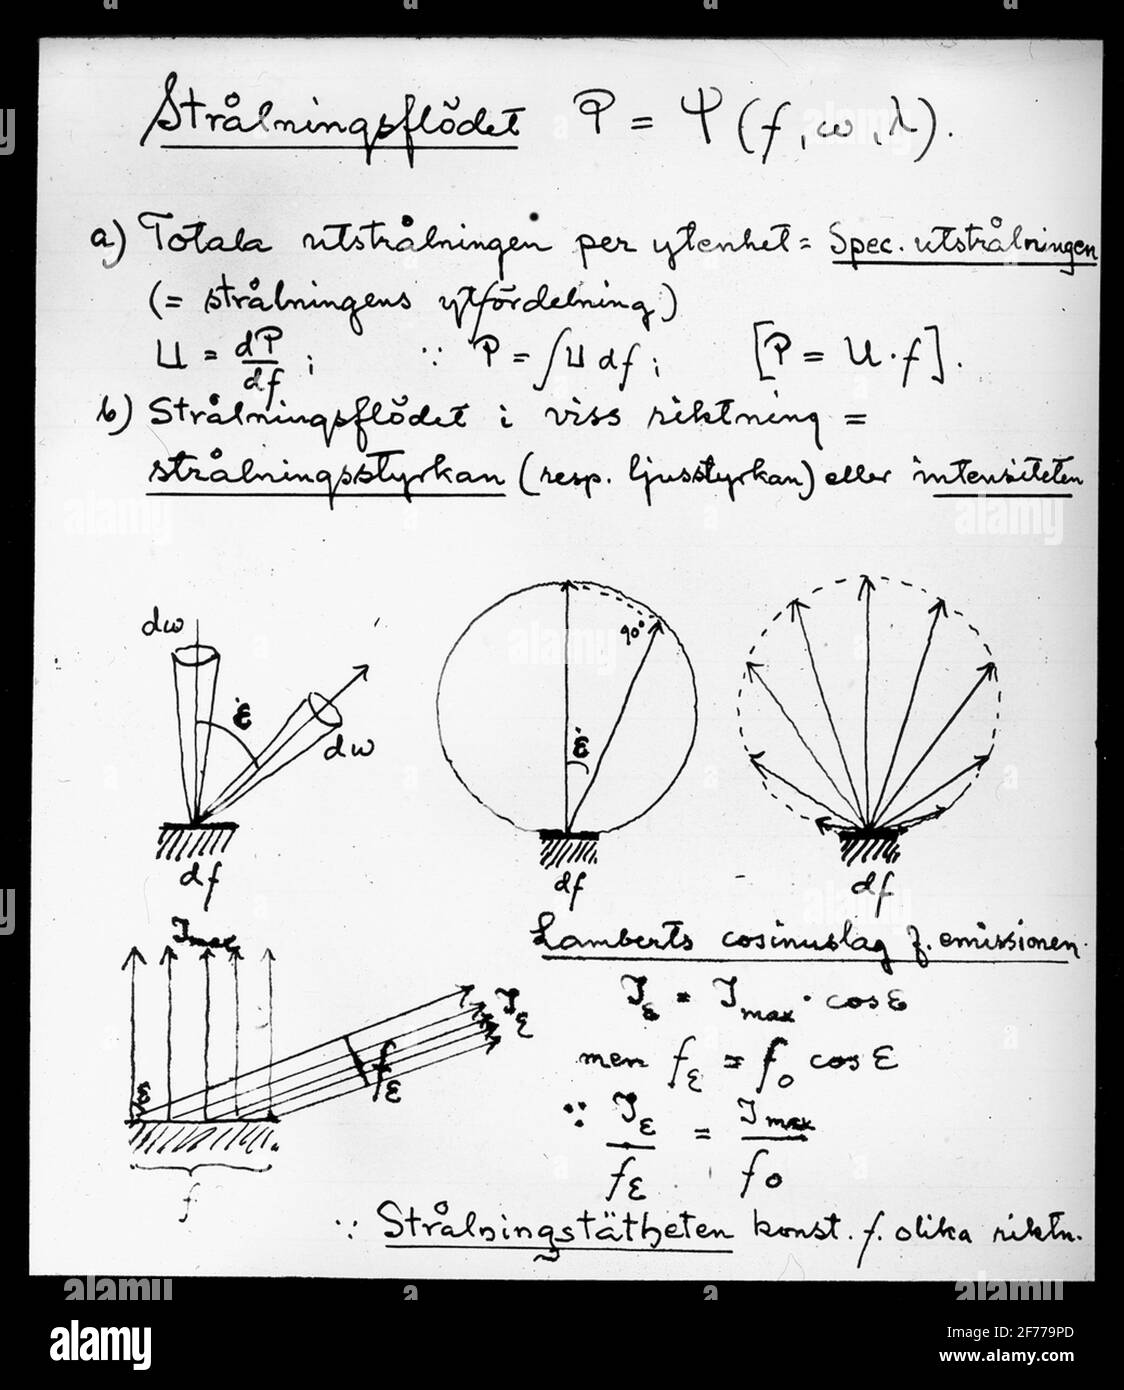 Strålningsflödet P = Ψ (f, ω, λ).
a) Totala utstrålningen per ytenhet = Spec. utstrålningen
(= strålningens ytfördelning)
U = dP/df ; ∵ P = ∫U df ; [P = U·f].
b) Strålningsflödet i viss riktning =
strålningsstyrkan (resp. ljusstyrkan) eller intensiteten
dω
ε
dω
df
90°
ε
df
df
Jmax
Jε
fε
ε
f
Lamberts cosinuslag f. emissionen.
Jε = Jmax · cos ε
men fε = f0 cos ε
∵ Jε/fε = Jmax/f0
∵ Strålningstätheten konst. f. olika riktn.
alamy
Image ID: 2F779PD
www.alamy.com